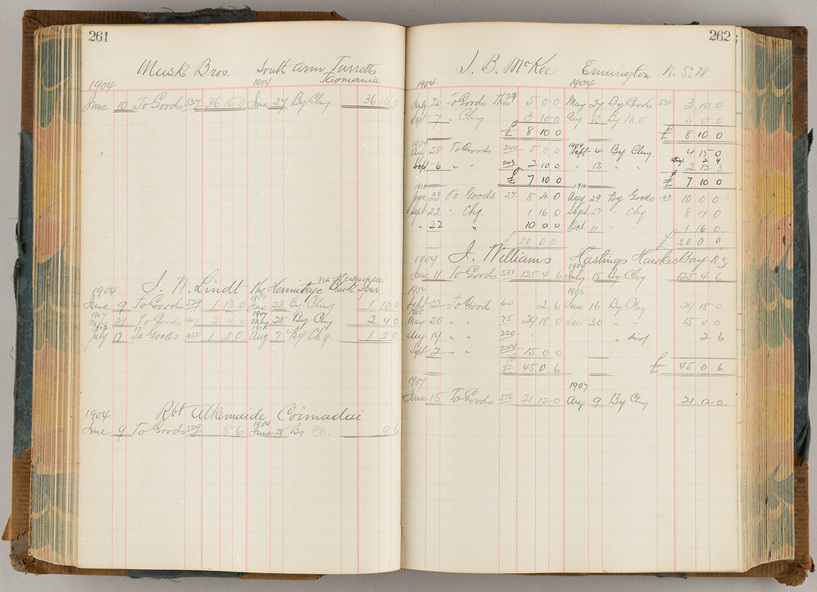 261
Musk Bros. South Arm Turretts
Tasmania
1904 1904
June 10 To Goods 527 36 15 0 June 27 By Chq 36 15 0
J. W. Lindt The Hermitage
1904
June 9 To Goods 529 1 13 0 June 28 By Chq 1 13 0
1907 1907
21 To Goods 2 4 0 28 By Chq 2 4 0
July 17 To Goods 1 2 0 Aug 7 By Chq 1 2 0
1904 Rbt Alkemaide Coimadai
June 9 To Goods 529 8 6 1904 June 28 By P.N. 9 6
262
J. B. McKee Ermington N. S. W
1904 1904
26 To Goods 5 0 0 May 27 By Goods 530 3 10 0
Sept 7 " Chq 3 10 0 Aug 10 By 5 0 0
£ 8 10 0 £ 8 10 0
Aug 28 To Goods 240 5 0 0 Sept 4 By Chq 4 15 0
Sept 6 " " 2 10 0 " 13 " " 2 12 3
£ 7 10 0 £ 7 10 0
1910 1910
June 23 To Goods 27 8 4 0 Aug 29 By Goods 10 0 0
Sept 22 " Chq 1 16 0 Sept 17 " Chq 8 4 0
" 22 " 10 0 0 Oct 11 " 1 16 0
20 0 0 £ 20 0 0
1904 J. Williams Hastings Hawkes Bay N.Z.
June 11 To Goods 531 125 4 6 July 15 By Chq 125 4 6
1904 1905
Sept 22 To Goods 60 2 6 June 16 By Chq 29 18 0
May 20 " " 75 29 18 0 30 " " 15 0 0
Aug 19 " " 220 " disct 2 6
Sept 2 " " 244 15 0 0
£ 45 0 6 £ 45 0 6
1907 1907
June 15 To Goods 516 21 12 0 Aug 9 By Chq 21 12 0